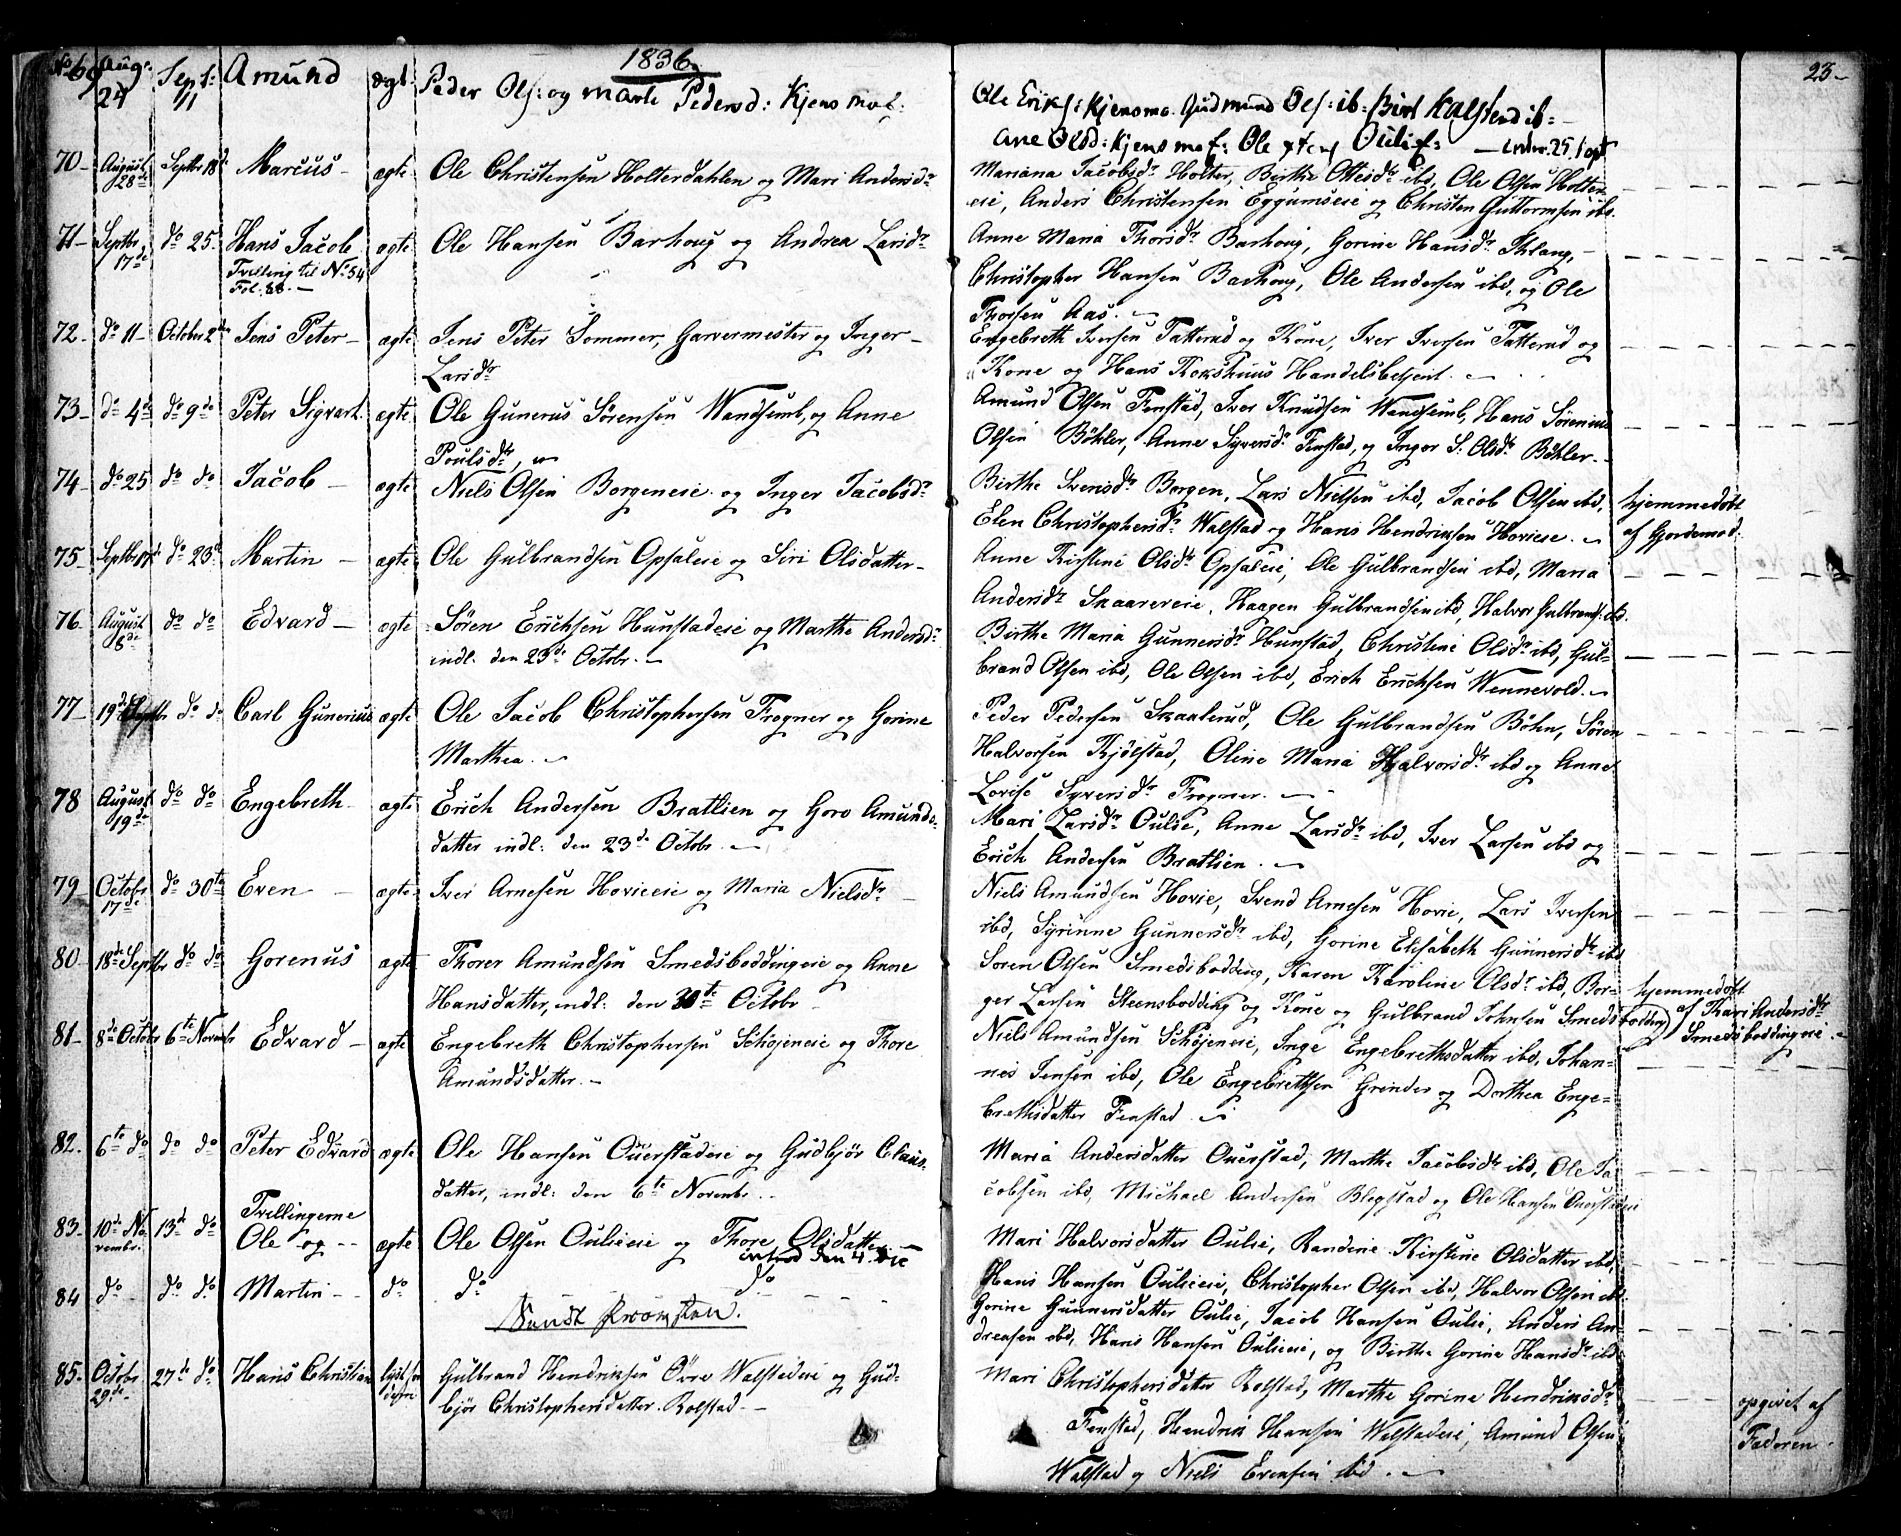 1836.
23-
No 69 Aug: 24 Sept: 11 Amund ægt: Peder Ols: og Marte Pedersd: Kjensmoe:
Ole Eriks: Kjensmo. Gudmund Ols: ib: Birt ib:
Ane Olsd: Kjensmo: Ole
70- August 28de Septbr 18de Marcus- ægte Ole Christensen Holterdahlen og Mari Andersdr
Mariana Jacobsdr Holter, Birthe Ottesdr ibd, Ole Olsen Holter-
eie, Anders Christensen Eggumseie og Christen Guttormsen ibd.
71- Septbr 17de do 25 Hans Jacob ægte Ole Hansen Barhoug og Andrea Larsdr
Tvilling til No 54
Fol. 22.-
Anne Maria Thorsdr Barhoug, Gorine Hansdr Ihlang,-
Christopher Hansen Barhoug, Ole Andersen ibd, og Ole
Thorsen Aas.
72- do 11- October 2den Jens Peter- ægte Jens Peter Sommer, Garvermester og Inger-
Larsdr
Engebreth Iversen Tatterud og Kone, Iver Iversen Tatterud og
Kone og Hans Kokshuus Handelsbetjent.
73- do 4de do 9de Peter Sigvart ægte Ole Gunerus Sørensen Wandsemb, og Anne
Poulsdr,
Amund Olsen Fenstad, Iver Knudsen Wandsemb, Hans Sørenius
Olsen Bøhler, Anne Syversdr Fenstad, og Inger S. Olsdr Bøhler.
74- do 25 do do Jacob- ægte Niels Olsen Borgeneie og Inger Jacobsdr
Birthe Svensdr Borgen, Lars Nielsen ibd, Jacob Olsen ibd,
Elen Christophersdr Walstad og Hans Hendriksen Hovieie.
hjemmedøbt
af Gjordemod:
75- Septbr 17de do 23de Martin- ægte Ole Gulbrandsen Opsaleie og Siri Olsdatter-
Anne Kirstine Olsdr Opsaleie, Ole Gulbrandsen ibd, Maria
Andersdr Skaarereie, Haagen Gulbrandsen ibd, Halvor Gulbrands: ibd.
76- August 6de do do Edvard- ægte Søren Erichsen Hunstadeie og Marthe Andersd:
indl: den 23de Octobr.-
Birthe Maria Gunnersdr Hunstad, Christine Olsdr ibd, Gul-
brand Olsen ibd, Ole Olsen ibd, Erich Erichsen Wennevold.
77- 19de Septbr do do Carl Gunerius ægte Ole Jacob Christophersen Frogner og Gorine
Marthea.
Peder Pedersen Skaalerud, Ole Gulbrandsen Bøhn, Søren
Halvorsen Kjølstad, Oline Maria Halvorsdr ibd og Anne
Lovise Syversdr Frogner.
78 August 19de do do Engebreth- ægte Erich Andersen Bratlien og Goro Amunds-
datter indl: den 23de Octobr.
Mari Larsdr Oulie, Anne Larsdr ibd, Iver Larsen ibd og
Erich Andersen Bratlien.
79- Octobr 17de do 30te Even- ægte Iver Arnesen Hovieeie og Maria Nielsdr
Niels Amundsen Hovie, Svend Arnesen Hovie, Lars Iversen
ibd, Syrinne Gunnersdr ibd, Gorine Elisabeth Gunnersdr ibd
80- 18de Septbr do do Gorenus ægte Thorer Amundsen Smedsboddingeie og Anne
Hansdatter, indl: den 30te Octobr
Soren Olsen Smedsbodding, Karen Karoline Olsdr ibd, Bor-
ger Larsen Steensbodding og Kone og Gulbrand Johnsen Smedsbodding
hjemmedøbt
af Kari Andersdr
Smedsboddingeie.
81- 8de Octobr 6te Novembr Edvard- ægte Engebreth Christophersen Schøjeneie og Thore
Amundsdatter.-
Niels Amundsen Schøjeneie, Inge Engebrethsdatter ibd, Johan-
nes Jensen ibd, Ole Engebrethsen Grinder og Dorthea Enge-
brethsdatter Fenstad.
82. 6te do do do Peter Edvard ægte Ole Hansen Ouerstadeie og Gudbjør Claus-
datter, indl: den 6te Novembr.
Maria Andersdatter Ouerstad, Marthe Jacobsdr ibd, Ole Ja-
cobsen ibd, Michael Andersen Blegstad og Ole Hansen Ouerstadeie
83- 10de No vembr: 13de do Tvillingerne
Ole og- ægte Ole Olsen Oulieeie og Thore Olsdatter
introd den 4 Dec
Mari Halvorsdatter Oulie, Randine Kirstine Olsdatter ibd,
Hans Hansen Oulieeie, Christopher Olsen ibd, Halvor Olsen ibd.
84 do do do Martin- do do do
Gorine Gunnersdatter Oulie, Jacob Hansen Oulie, Anders An-
dreasen ibd, Hans Hansen Oulieeie, og Birthe Gorine Hansdr ibd
85- Octobr 29de- 27de do Hans Christian Gulbrand Hendriksen Øvre Walstadeie og Gud-
bjør Christophersdatter Rolstad-
Mari Christophersdatter Rolstad, Marthe Gorine Hendriksdr
Fenstad, Hendrik Hansen Walstadeie, Amund Olsen
Walstad og Niels Evensen ibd.
opgivet af
Faderen.